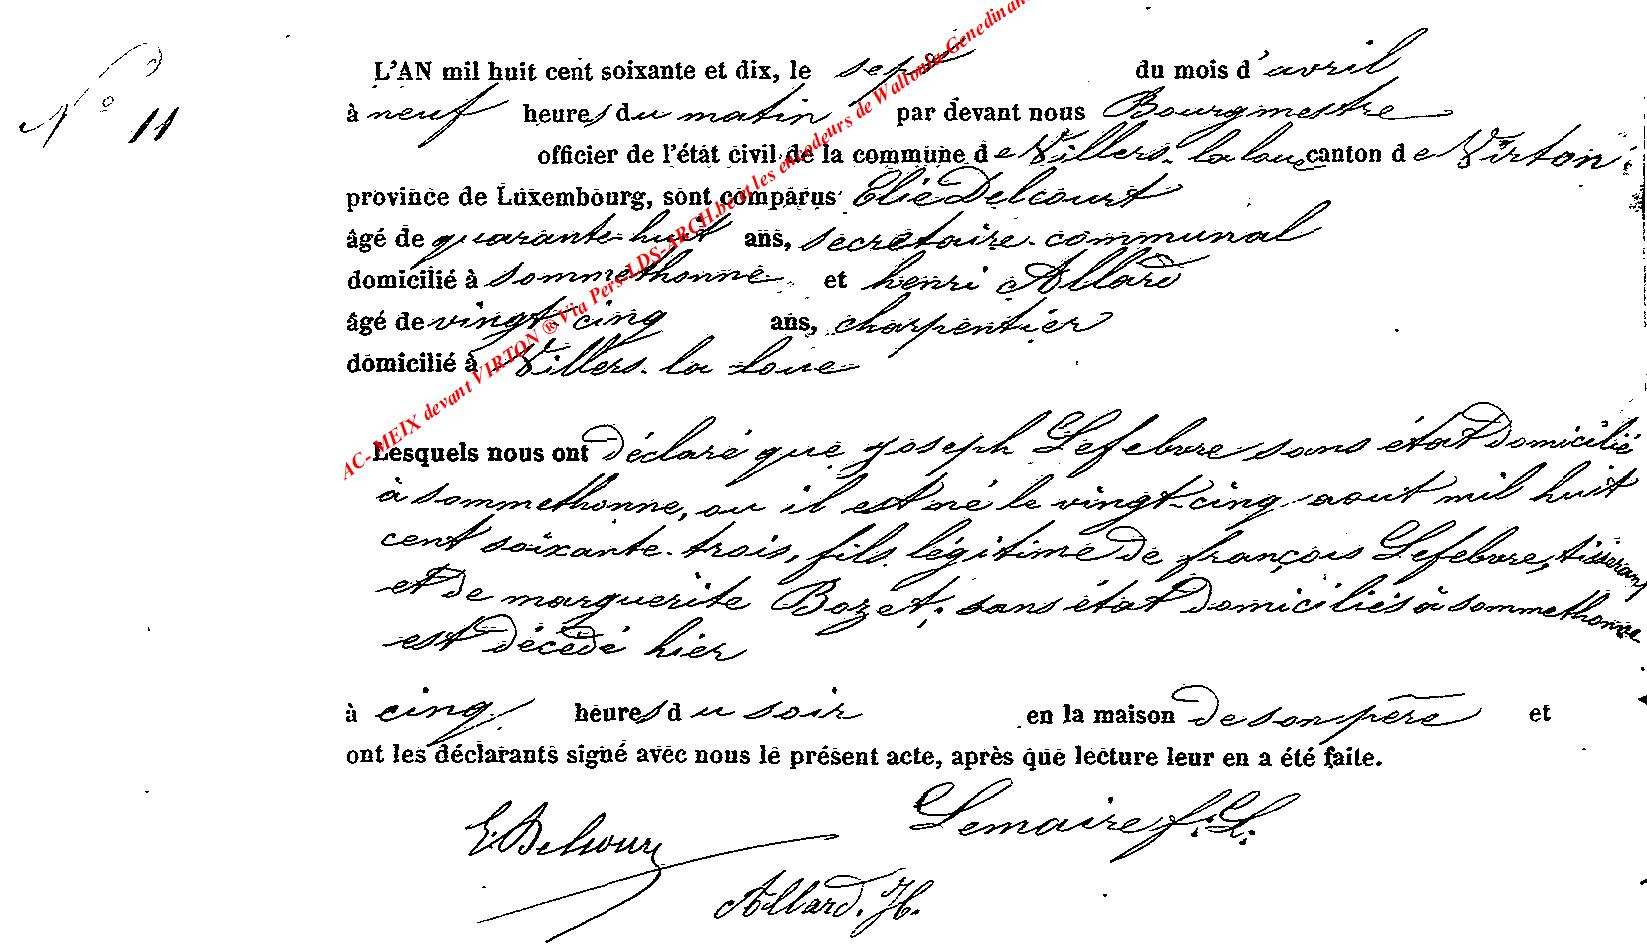 N° 11
L'AN mil huit cent soixante et dix, le sept du mois d'avril
à neuf heures du matin par devant nous Bourgmestre
officier de l'état civil de la commune de Villers-la loue canton de Virton
province de Luxembourg, sont comparus Elie Delcourt
âgé de quarante-huit ans, secrétaire-communal
domicilié à sommethonne et henri Allard
âgé de vingt cinq ans, charpentier
domicilié à Villers-la-loue
AC-MEIX devant VIRTON ® Via Pers-LDS-ARCH.be et les encodeurs de Wallonia-Genedinant
Lesquels nous ont déclaré que joseph Lefebvre sans état domicilié
à sommethonne, ou il est né le vingt-cinq aout mil huit
cent soixante-trois, fils légitime de françois Lefebvre, tisserand
et de marguerite Bozet, sans état domiciliés à sommethonne
est décédé hier
à cinq heures du soir en la maison de son père et
ont les déclarants signé avec nous le présent acte, après que lecture leur en a été faite.
E. Delcourt
Lemaire f. L.
Allard. H.